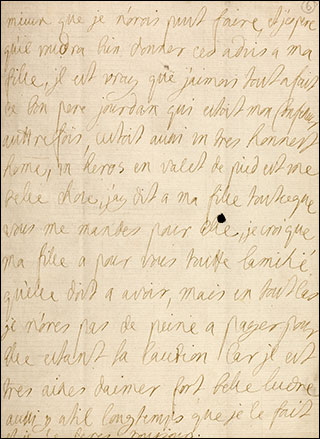 mieux que je n'orois peut faire, et j'espere
quil voudra bien donner ces advis a ma
fille, jl est vray que jaimois tout a fait
le bon pere jourdan qui estoit mon
auttre fois, cestoit aussi un tres honnest
home, un heros en valet de pied est une
belle chose, jay dit a ma fille tout ce que
vous me mandes pour elle, je croi que
ma fille a pour vous toutte lamitié
quelle doit a avoir, mais en tout cas
je n'ores pas de peine a payer pour
elle estant sa caution car jl est
tres aises daimer fort belle
aussi y atil longtemps que je le fait